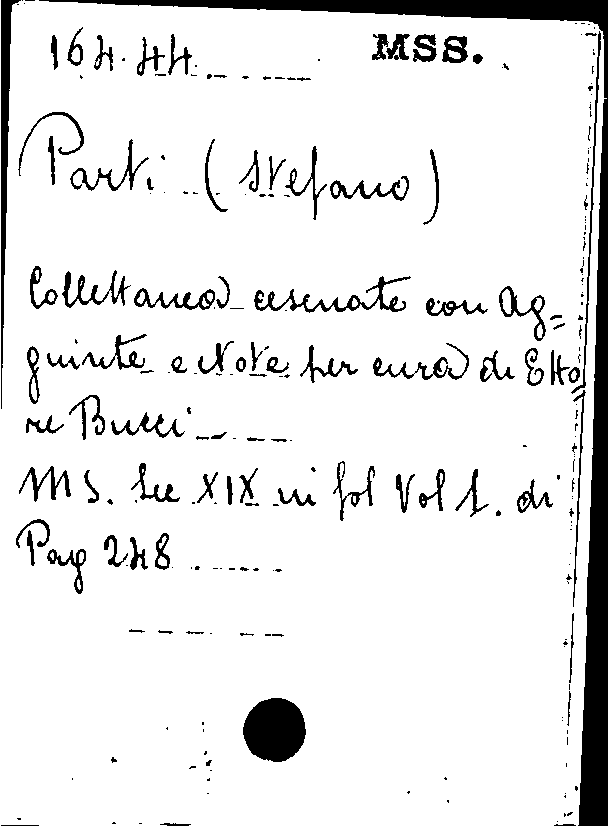 164.44. MSS.
Parti (Stefano)
Collettanea cesenate con Ag=
giunte e Note per cura di Etto=
re Bucci
MS. Sec XIX in fol Vol 1. di
Pag 248